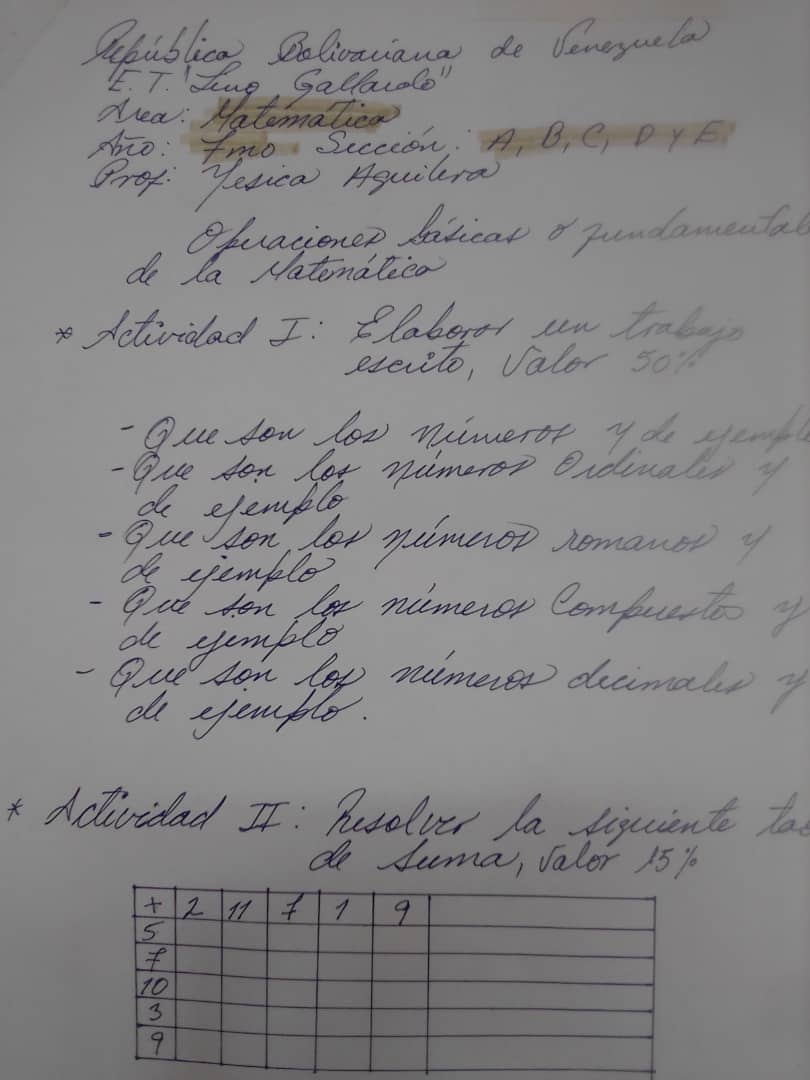 República Bolivariana de Venezuela
E. T. "Lino Gallardo"
Área: Matemática
Año: 7mo Sección: A, B, C, D y E
Prof: Yesica Aguilera
Operaciones básicas o fundamental
de la Matemática
* Actividad I: Elaborar un trabajo
escrito, Valor 50%
- Que son los números y de ejemplo
- Que son los números Ordinales y
de ejemplo
- Que son los números romanos y
de ejemplo
- Que son los números Compuestos y
de ejemplo
- Que son los números decimales y
de ejemplo.
* Actividad II: Resolver la siguiente
de suma, Valor 15%
+ 2 11 7 1 9
5
7
10
3
9